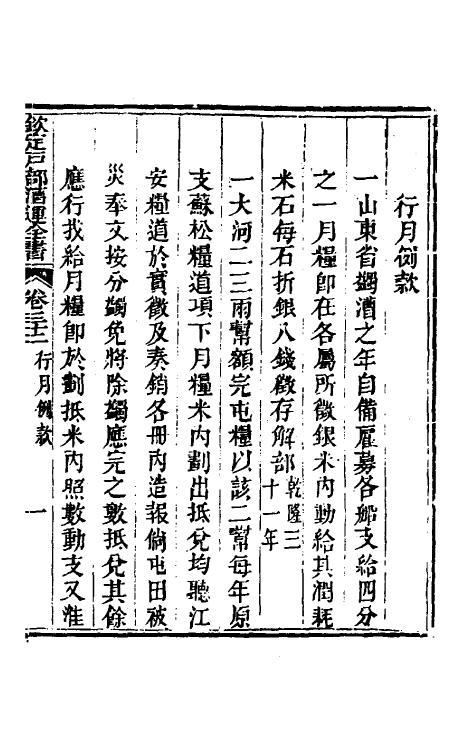 行月例款
一山東省蠲漕之年自備雇募各船支給四分
之一月糧卽在各屬所徵銀米內動給其潤耗
米石每石折銀八錢徵存解部乾隆三
十一年
一大河二三兩幫額完屯糧以該二幫每年原
支蘇松糧道項下月糧米內劃出抵兌均聽江
安糧道於實徵及奏銷各冊內造報倘屯田被
災奉文按分蠲免將除蠲應完之數抵兌其餘
應行找給月糧卽於劃抵米內照數動支又淮
欽定戶部漕運全書 卷三十二 行月例款 一